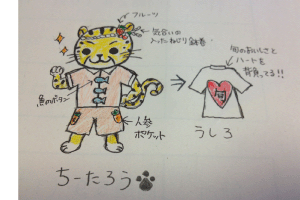 フルーツ
気合いの
入ったねじり鉢巻
旬のおいしさと
ハートを
背負ってる!!
魚のボタン
旬
人参
ポケット
うしろ
ちーたろう